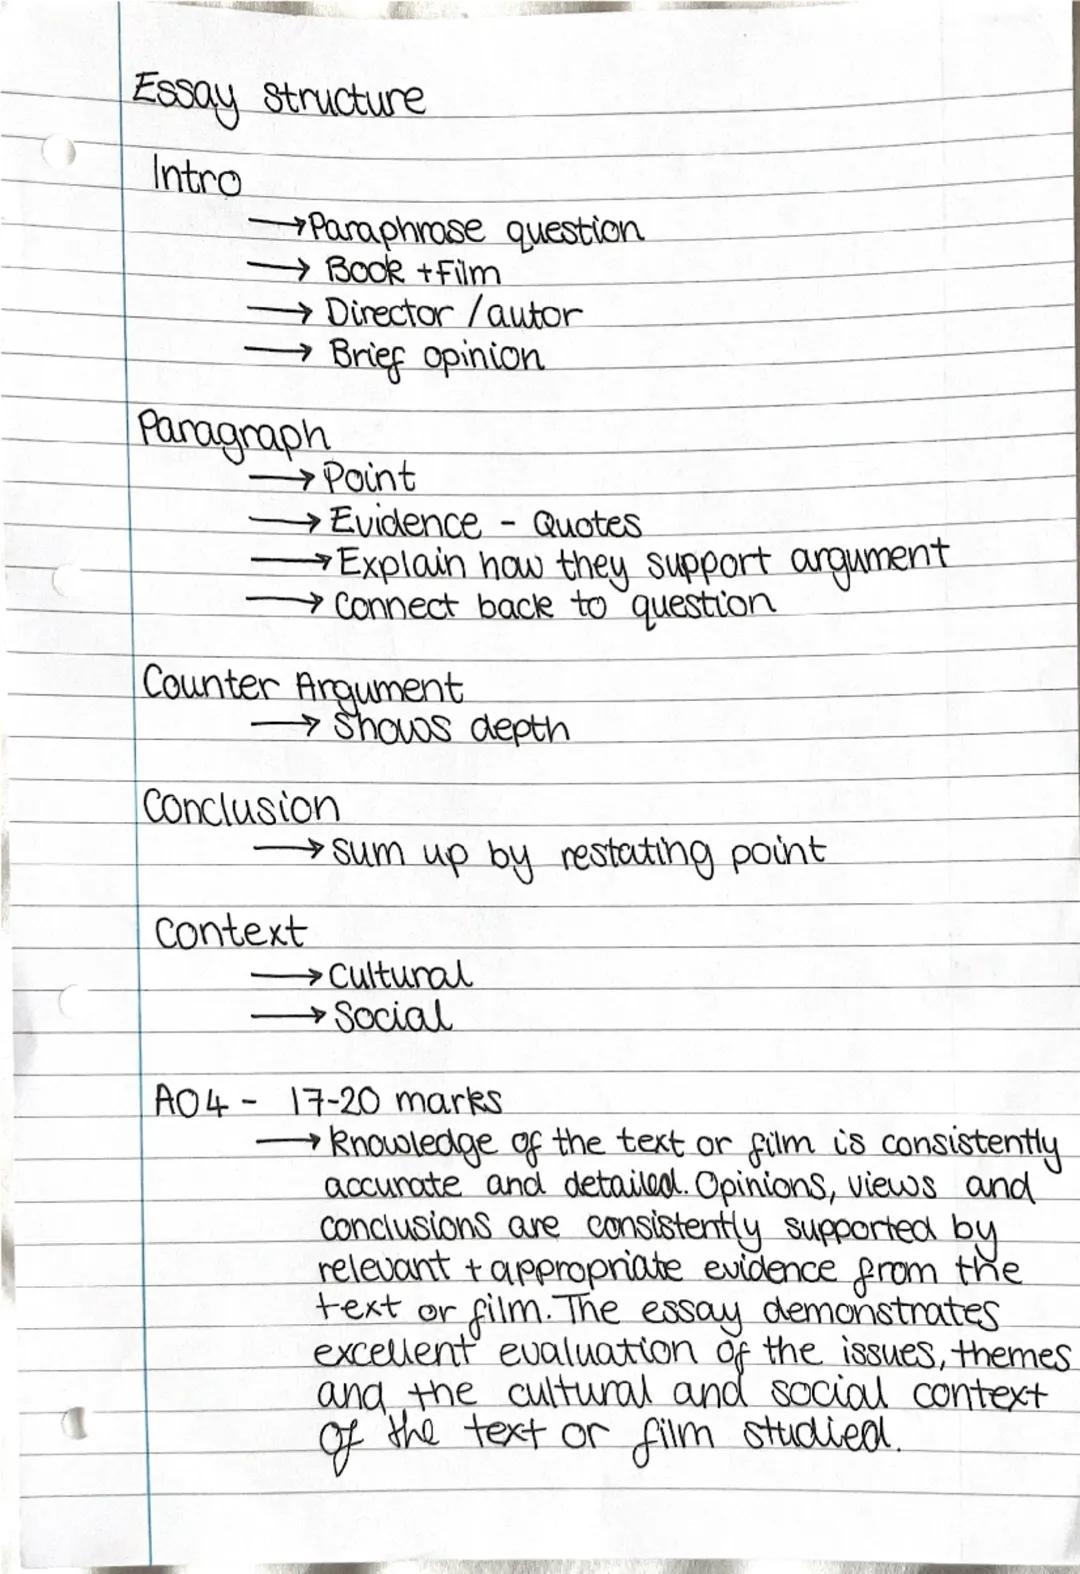 Essay structure
Intro
→Paraphrase question
→ Book + Film
→ Director / autor
→ Brief opinion
Paragraph
→ Point
→ Evidence - Quotes
→ Explain how they support argument
→ Connect back to question
Counter Argument
→ Shows depth
Conclusion
→ sum up by restating point
Context
→ Cultural
→ Social
AO4 - 17-20 marks
→ Knowledge of the text or film is consistently
accurate and detailed. Opinions, views and
conclusions are consistently supported by
relevant + appropriate evidence from the
text or film. The essay demonstrates
excellent evaluation of the issues, themes
and the cultural and social context
of the text or film studied.